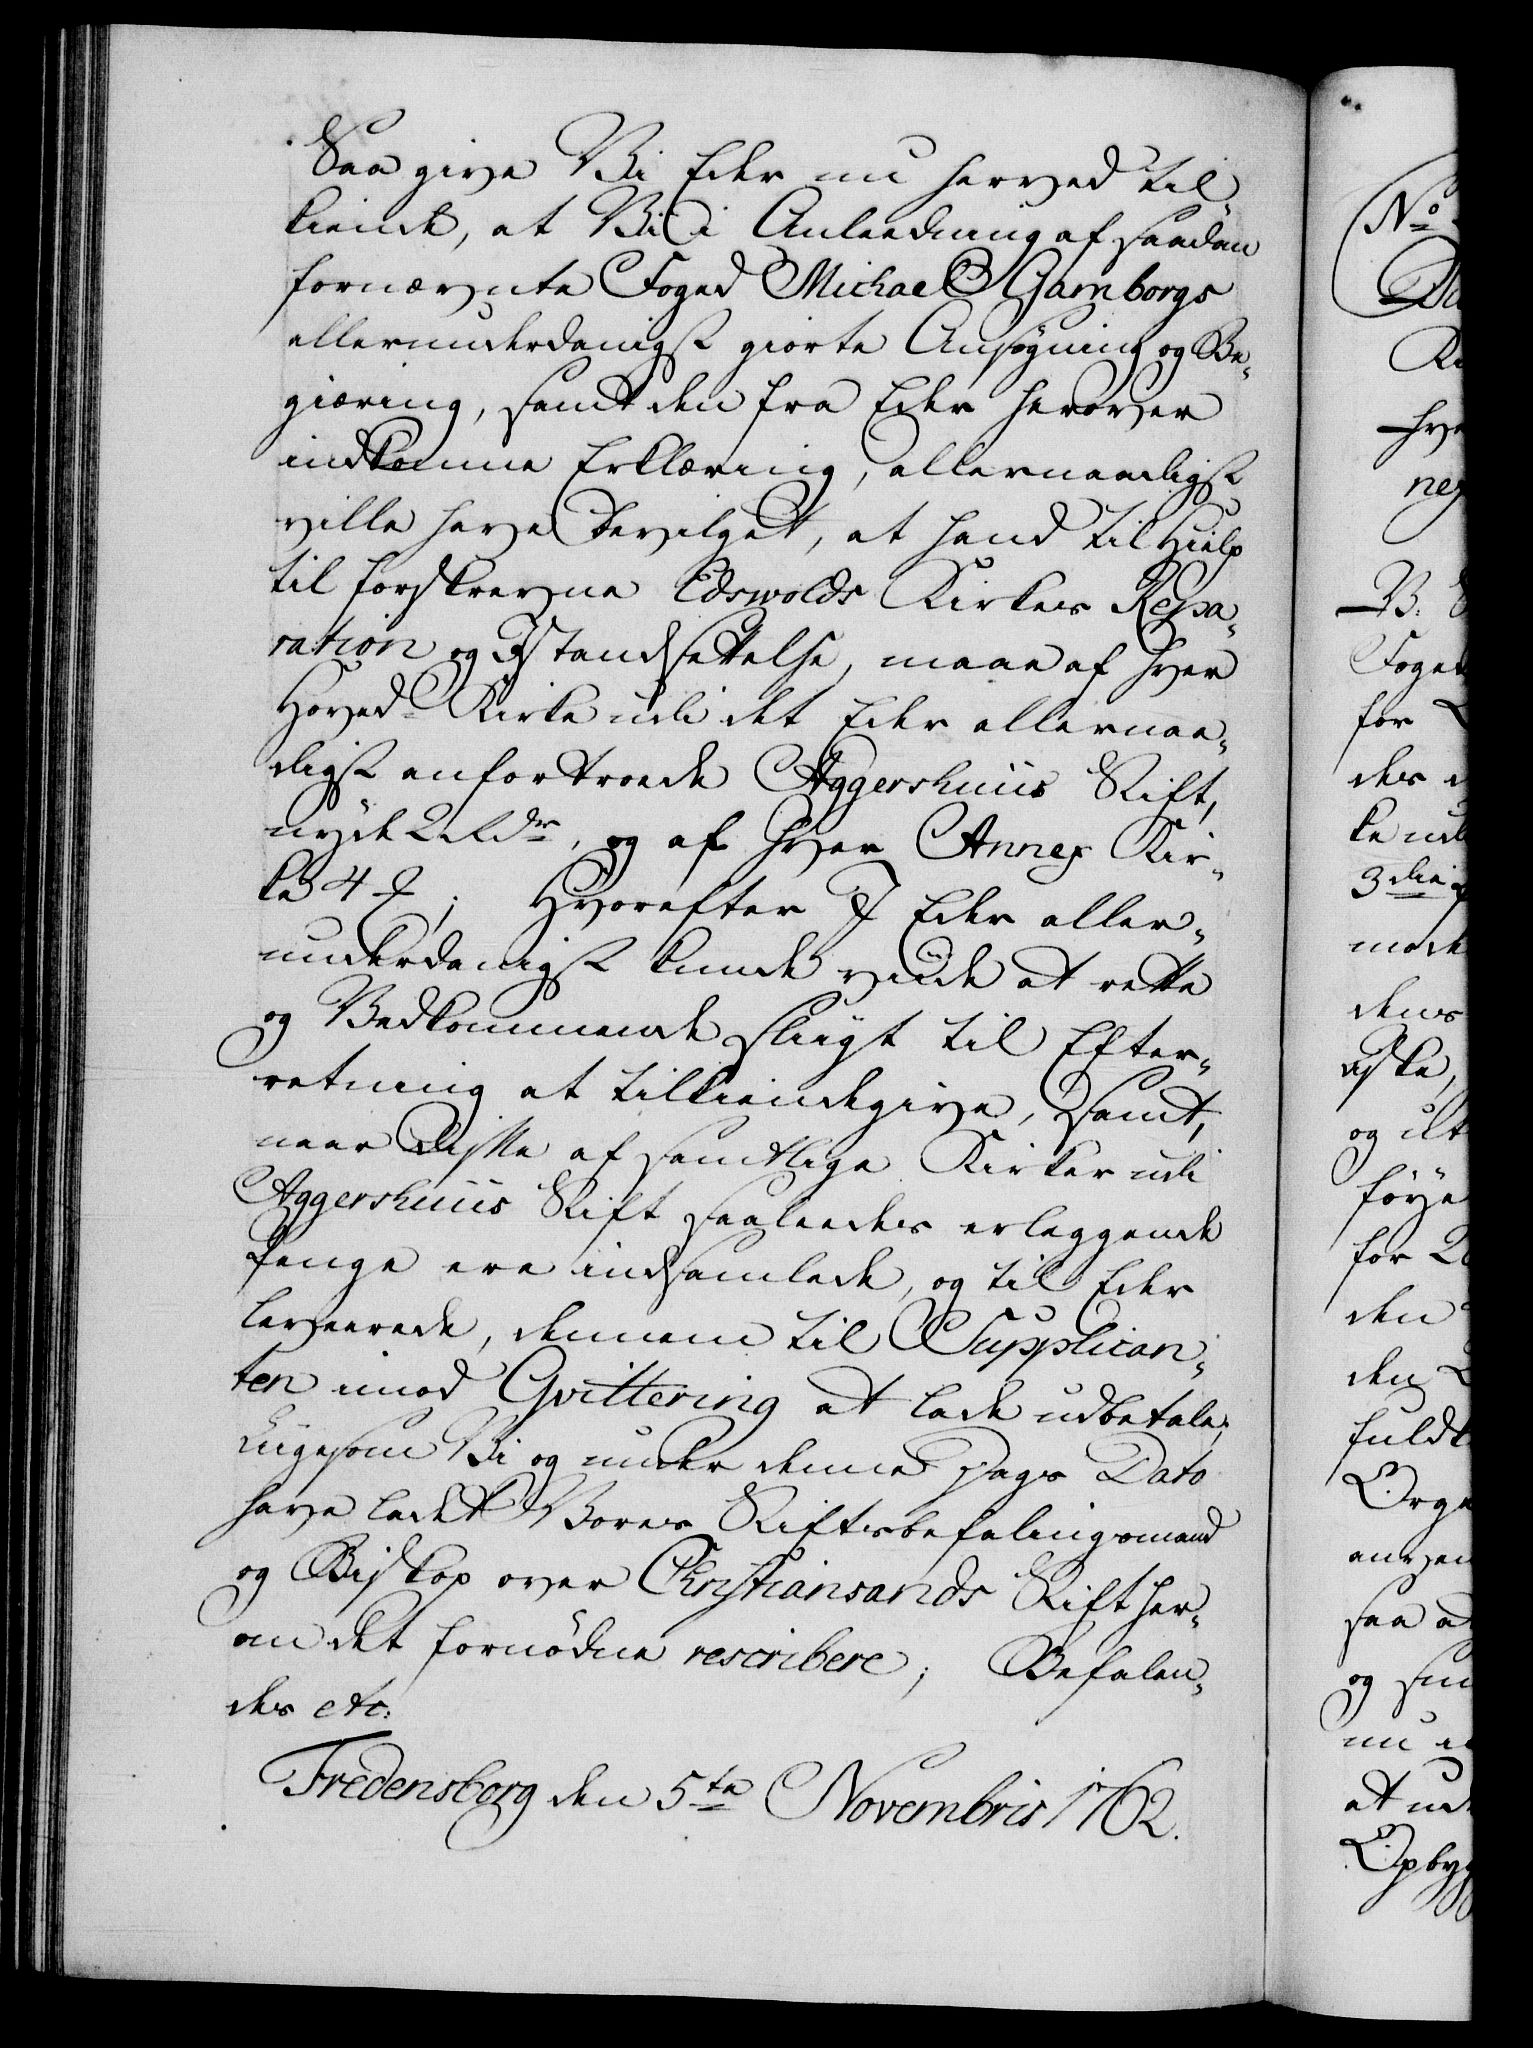 Saa give Vi Eder nu herved til-
kiende, at Vi i Anleedning af saadan
fornævnte Foged Michael Gamborgs
allerunderdanigst giorte Ansøgning og Be-
giæring, samt den fra Eder herover
indkomne Erklæring, allernaadigst
ville have bevilget, at hand til Hielp
til forskrevne Edswolds Kirkes Repa-
ration og Istandsettelse, maae af hver
Hoved-Kirke udi det Eder allernaa-
digst anfortroede Aggershuus Stift,
nyde 2 Rdr, og af hver Annex Kir-
ke 4 ;    Hvorefter I Eder aller-
underdanigst kunde viide at rette
og Vedkommende sligt til Efter-
retning at tilkiendegive, samt,
naar disse af samtlige Kirker udi
Aggershuus Stift saaleedes erleggende
Penge ere indsamlede, og til Eder
leverede, dennem til Supplican-
ten imod Qvittering at lade udbetale;
Liigesom Vi og under denne Dags Dato
have ladet Vores Stiftsbefalingsmand
og Biskop over Christiansands Stift her-
om det fornødne rescribere; Befalen-
des etc:
Fredensborg den 5te Novembris 1762.
No
Da
Ki
hve
nex
B:
Foget
for
des
ke udi
3die
mode
dens
diske,
og ud
føye
for
den
den
fuldk
Orge
anven
saa at
og sm
nu
at ud
Opbyg